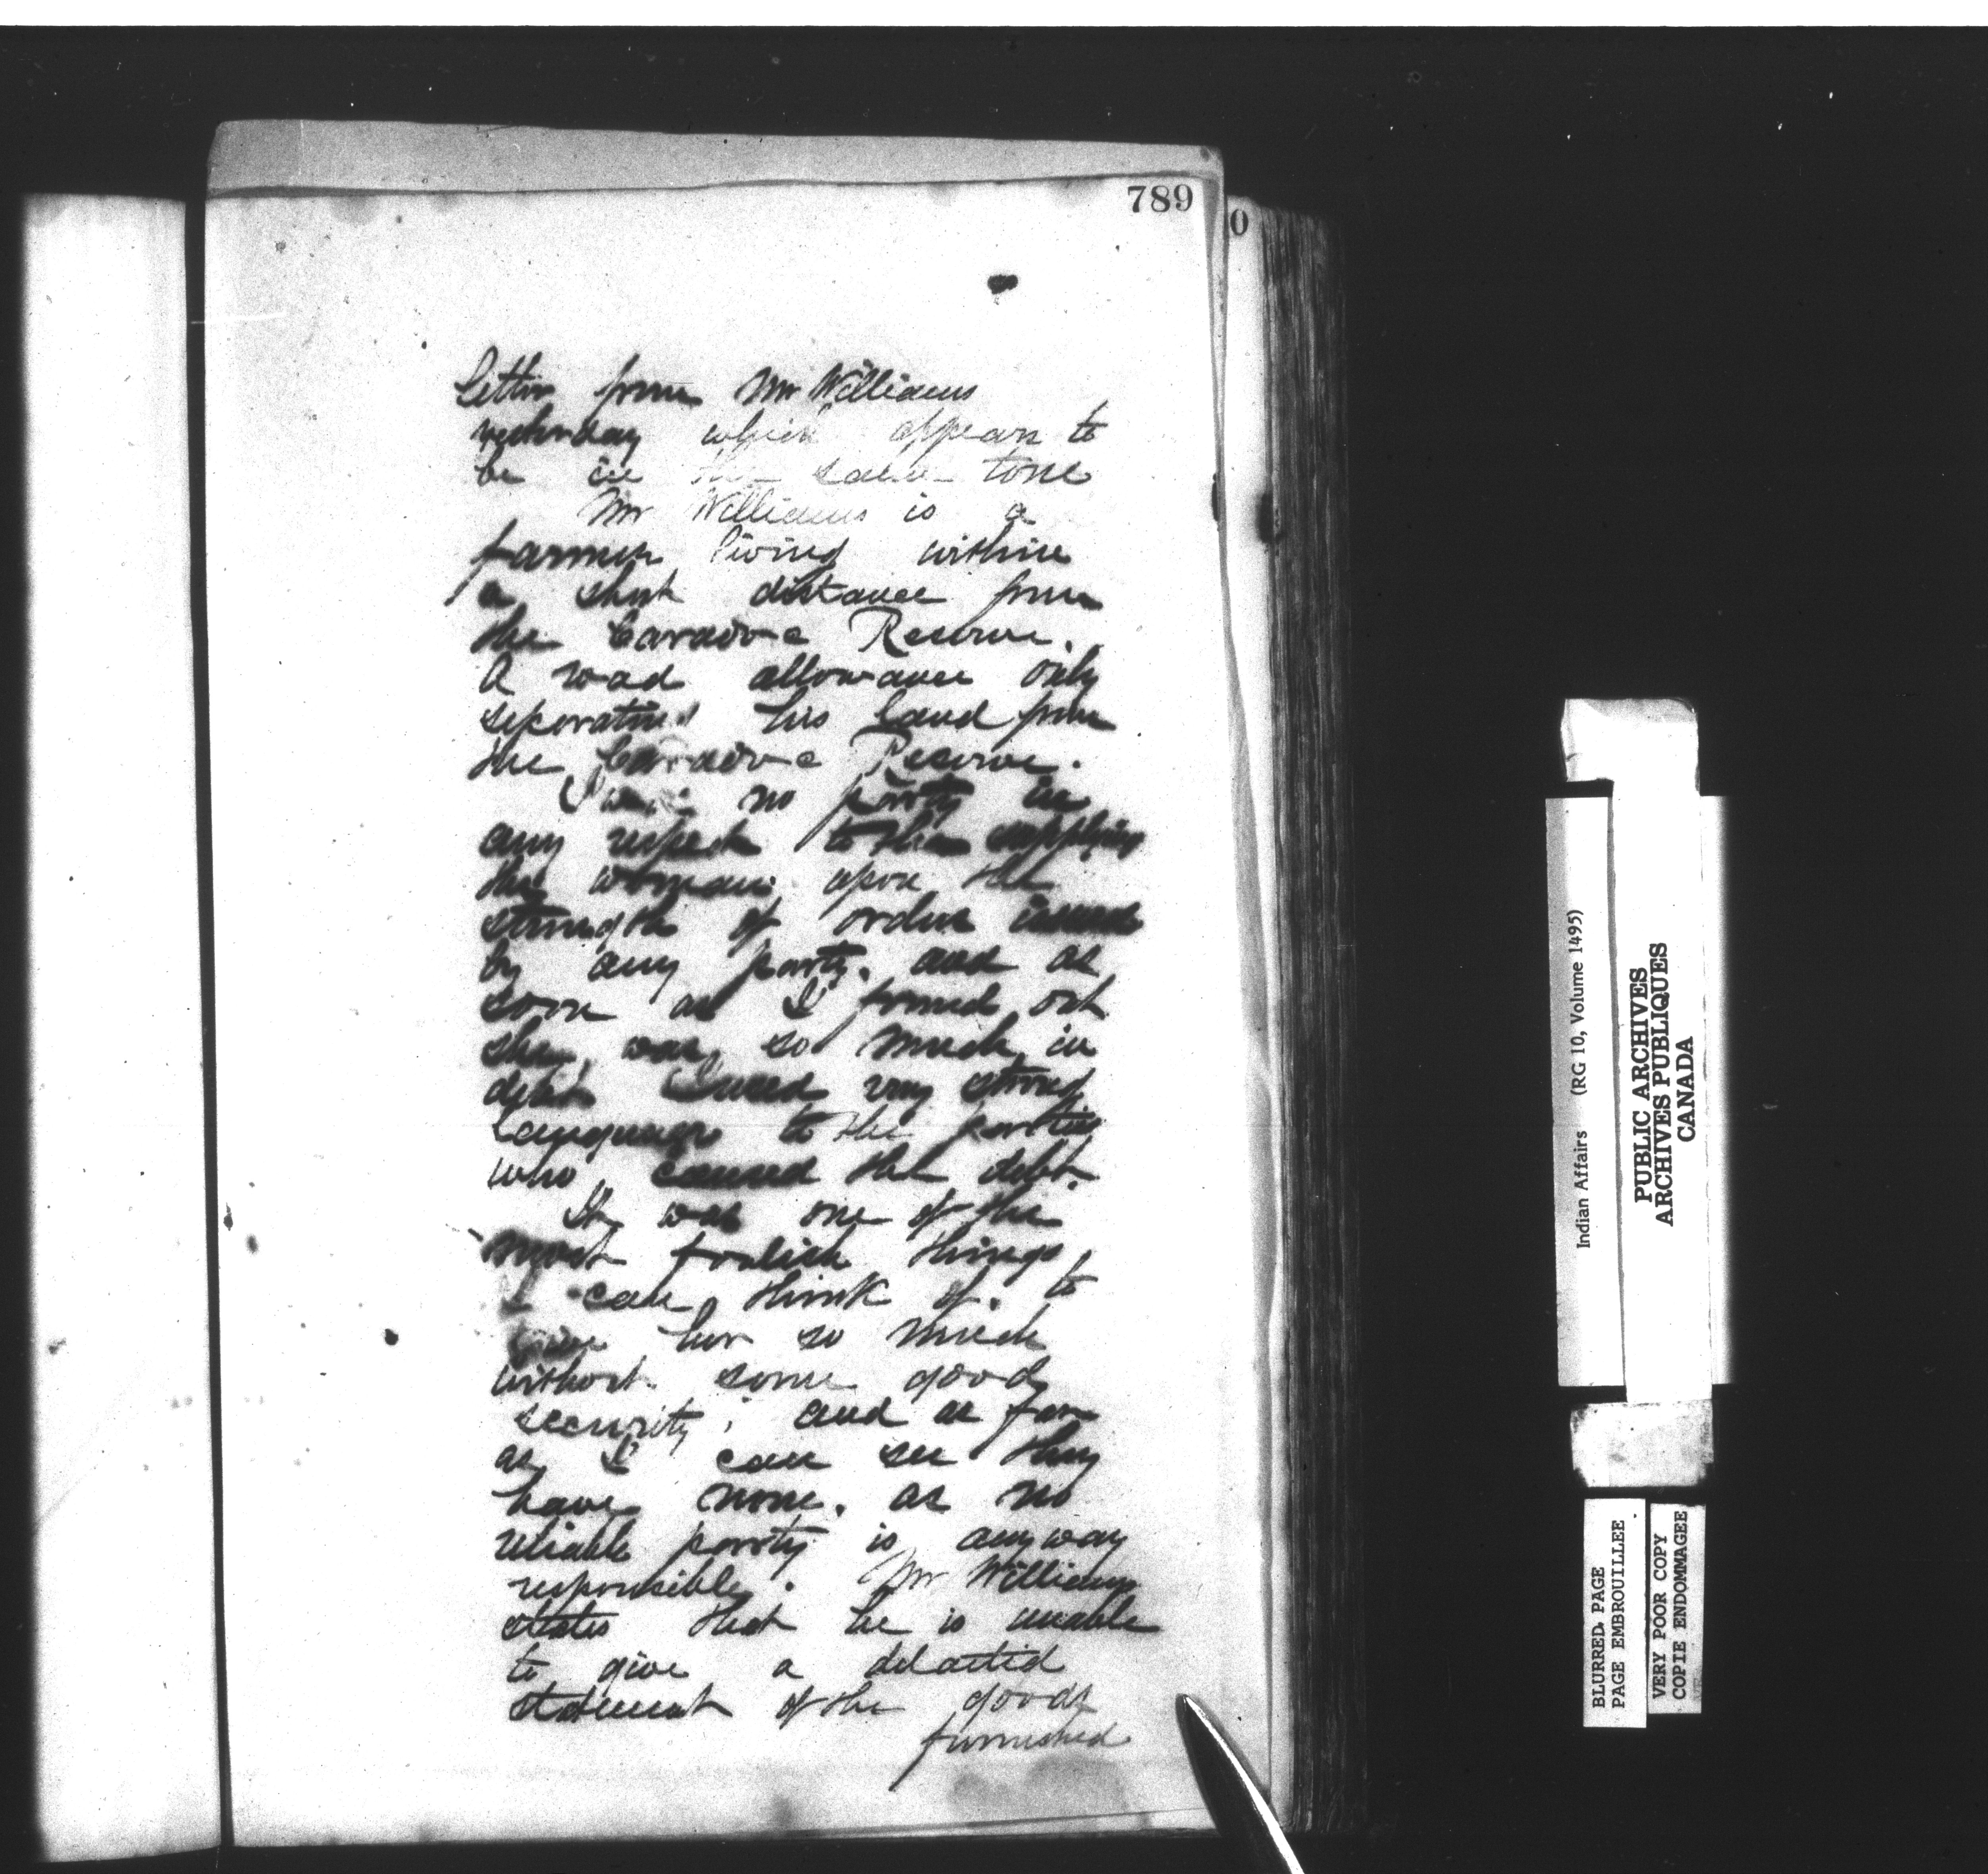 789
0
letter from Mr Williams
yesterday which appears to
be in the same tone
Mr Williams is a
farmer living within
a short distance from
the Caradoc Reserve.
A road allowance only
separates his land from
the Caradoc Reserve.
I was no party in
any respect to the supplying
the woman upon the
strength of orders issued
by any party. and as
soon as I found out
she was so much in
debt I used very strong
language to the parties
who caused the debt.
It was one of the
most foolish things
I can think of. to
give her so much
without some good
security; and as far
as I can see they
have none. as no
reliable party is anyway
responsible. Mr Williams
states that he is unable
to give a detailed
statement of the goods
furnished
Indian Affairs (RG 10, Volume 1495)
PUBLIC ARCHIVES
ARCHIVES PUBLIQUES
CANADA
BLURRED PAGE
PAGE EMBROUILLEE
VERY POOR COPY
COPIE ENDOMMAGEE